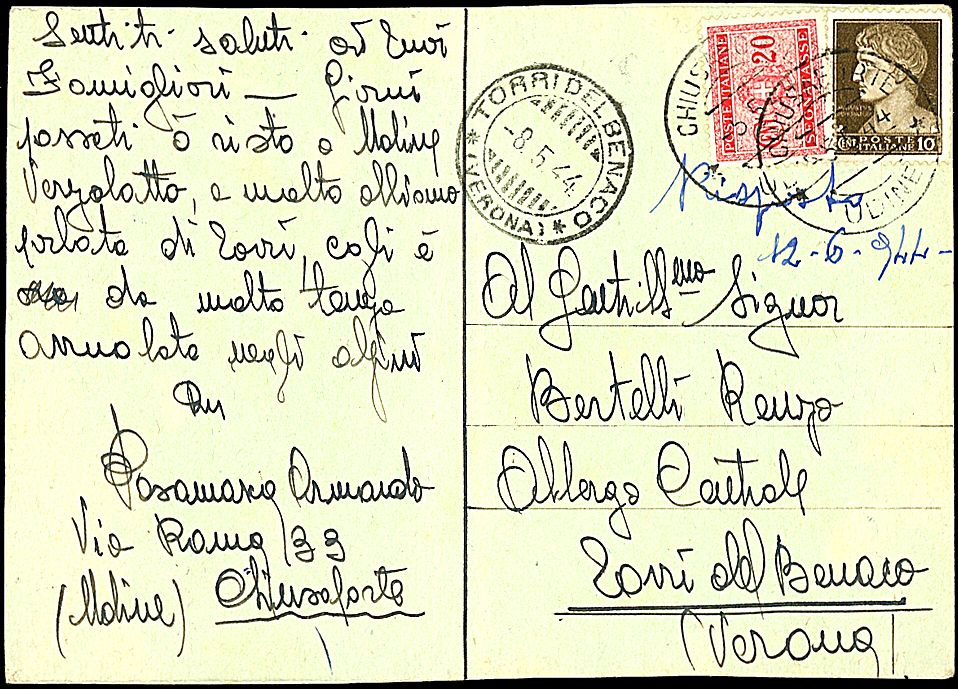 Sentiti saluti ai tuoi
Famigliori — Giorni
passati ò visto a Udine
Vergolatto, e molto abbiamo
parlato di Torri, cosi è
da molto tempo
arruolato negli alpini
Posamara Armando
Via Roma 33
(Udine) Chiusaforte
TORRI DEL BENACO
(VERONA)
-8.5.44
POSTE ITALIANE
20
SEGNATASSE
CHIUS
UDINE
POSTE
ITALIANE
CENT. 10
Risposto
12-6-944-
Al Gentill.mo Signor
Bertelli Renzo
Albergo Centrale
Torri del Benaco
(Verona)